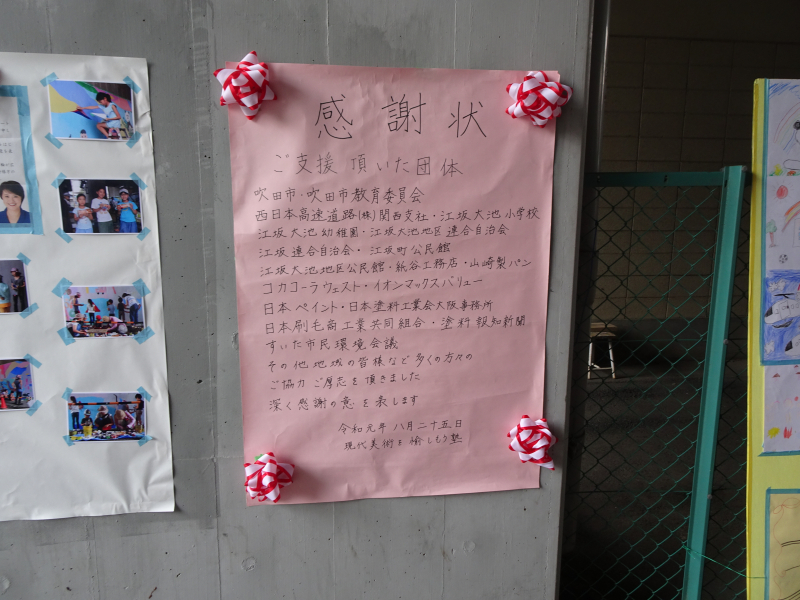 感謝状
ご支援頂いた団体
吹田市・吹田市教育委員会
西日本高速道路(株)関西支社・江坂大池小学校
江坂大池幼稚園・江坂大池地区連合自治会
江坂連合自治会・江坂町公民館
江坂大池地区公民館・紙谷工務店・山崎製パン
コカコーラウェスト・イオンマックスバリュー
日本ペイント・日本塗料工業会大阪事務所
日本刷毛商工業共同組合・塗料報知新聞
すいた市民環境会議
その他地域の皆様など多くの方々の
ご協力ご厚志を頂きました
深く感謝の意を表します
令和元年八月二十五日
現代美術を愉しもう塾